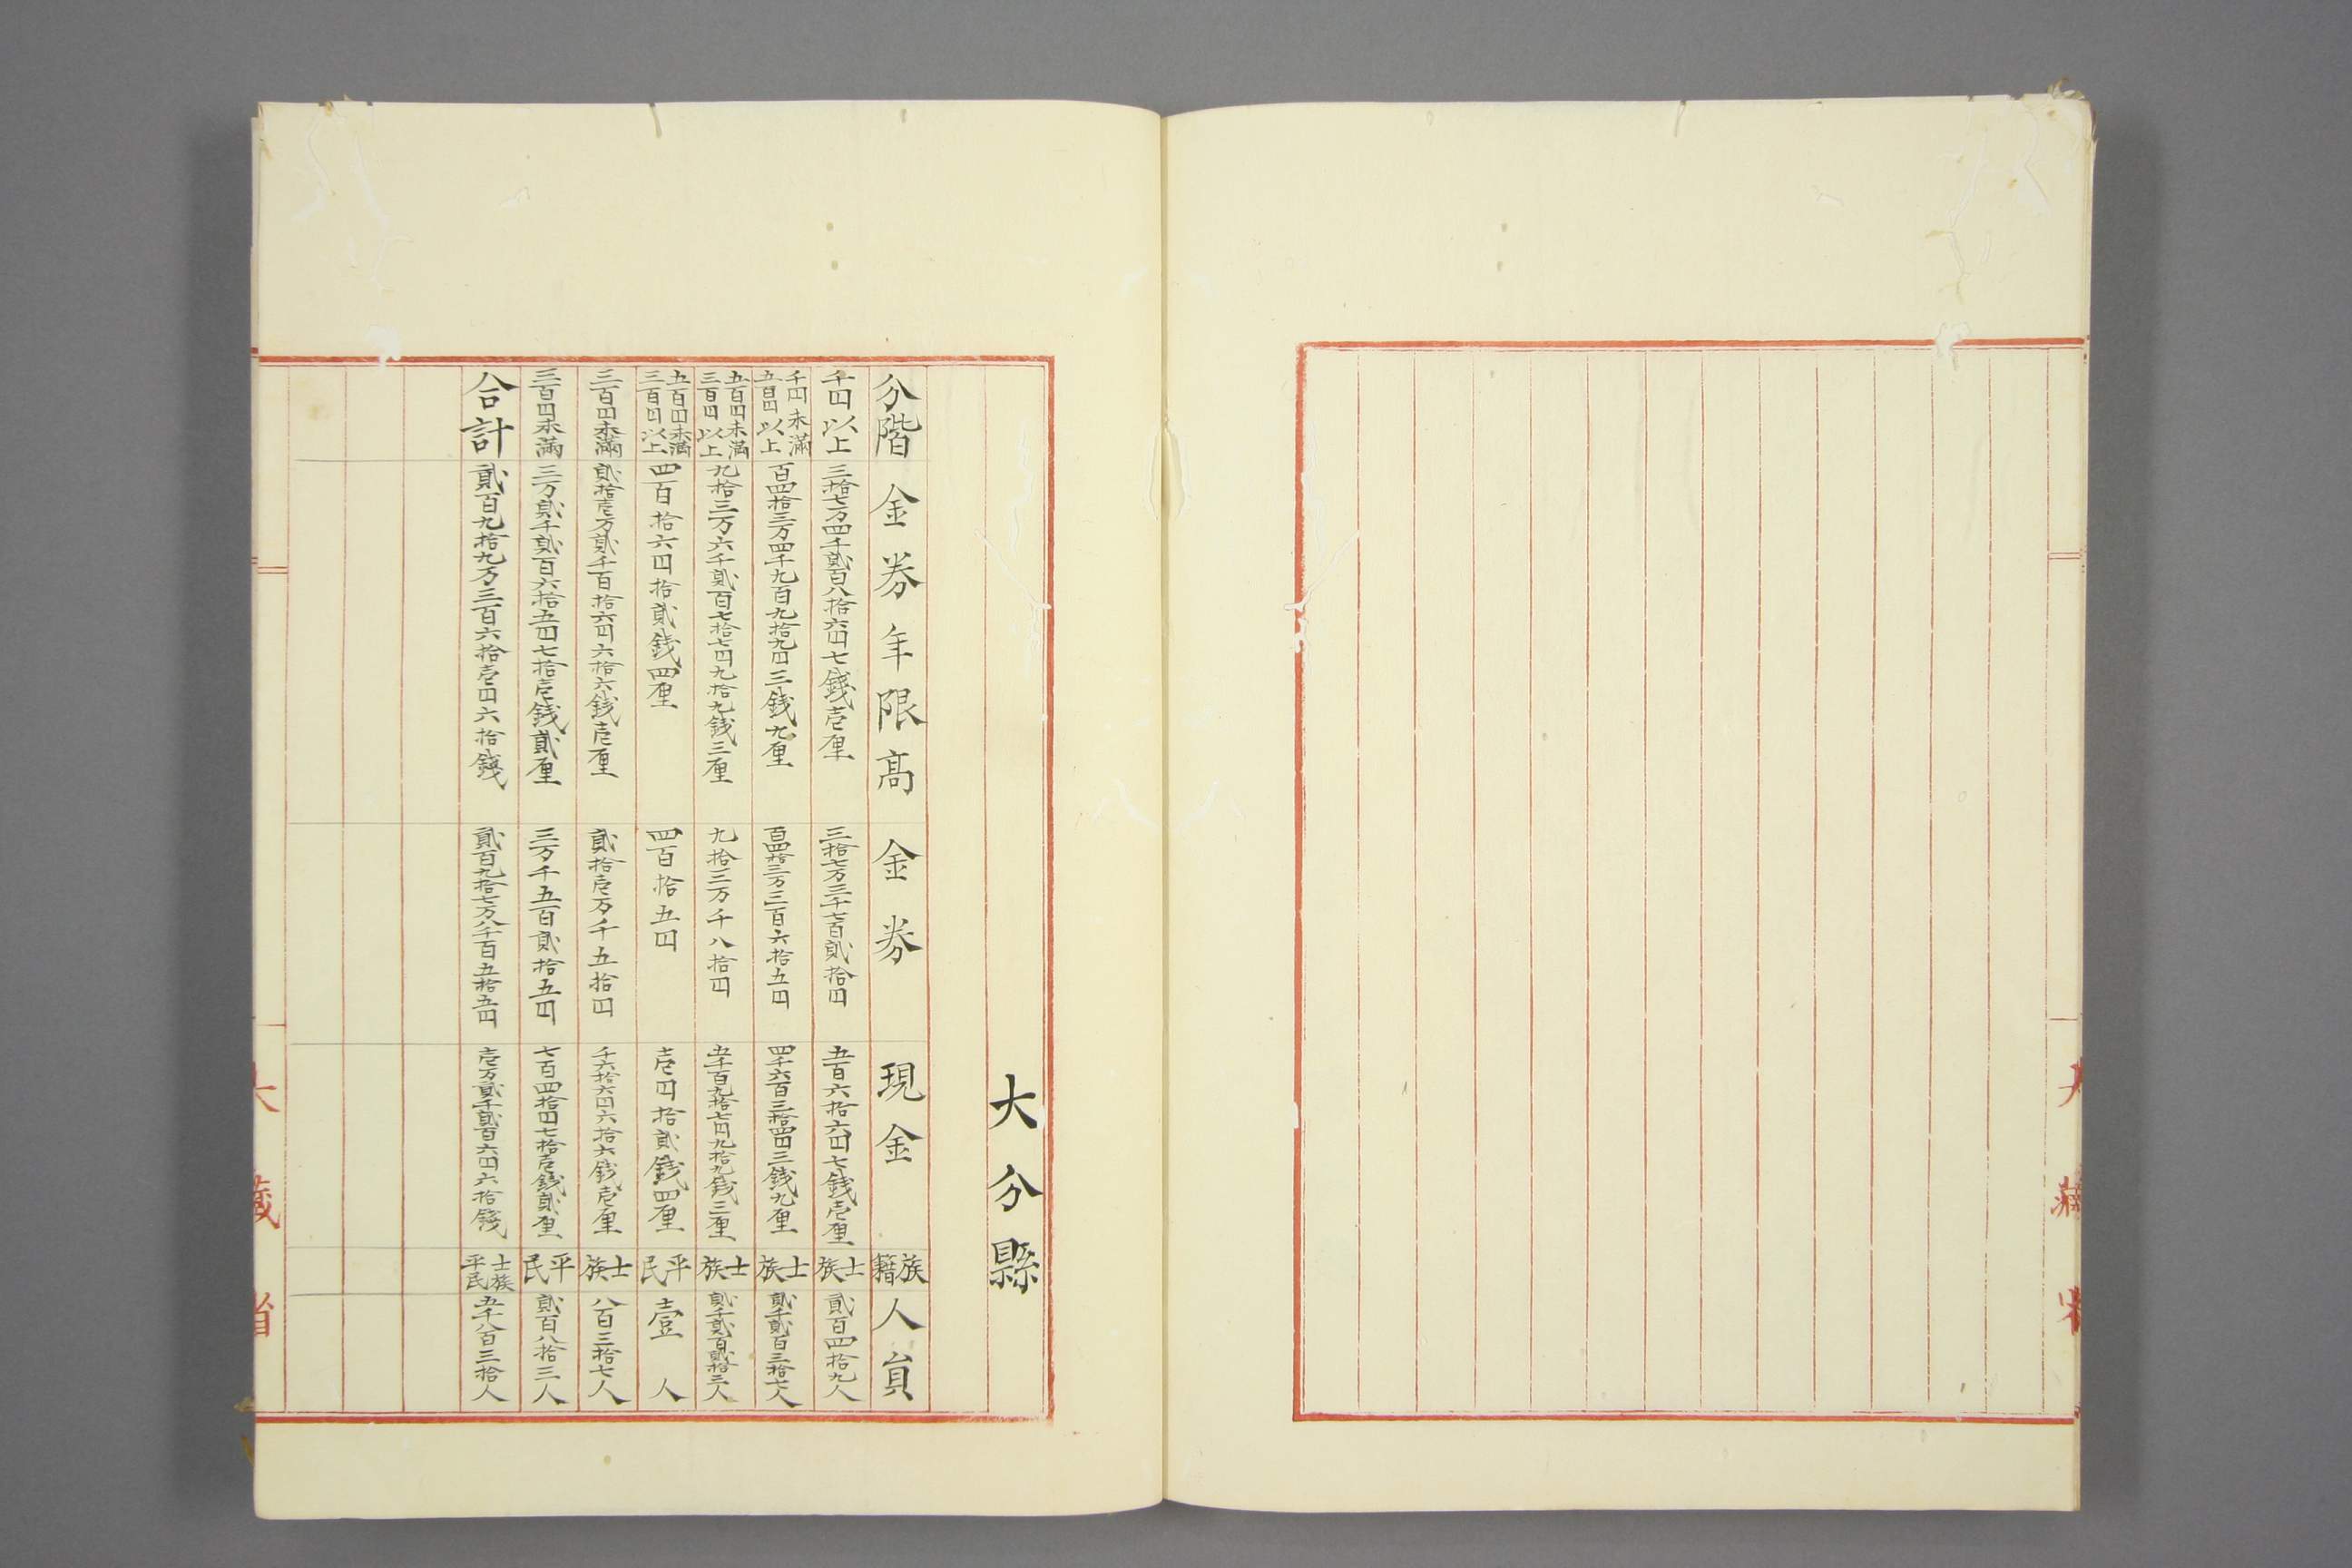 大分縣
分階 金券年限高 金券 現金 族籍 人員
千円以上 三拾七万四千貳百八拾六円七銭壱厘 三拾七万三千七百貳拾円 五百六拾六円七銭壱厘 士族 貳百四拾九人
千円未満五百円以上 百四拾三万四千九百九拾九円三銭九厘 百四拾三万三百六拾五円 四千六百三拾四円三銭九厘 士族 貳千貳百三拾七人
五百円未満三百円以上 九拾三万六千貳百七拾七円九拾九銭三厘 九拾三万千八拾円 五千百九拾七円九拾九銭三厘 士族 貳千貳百貳拾三人
五百円未満三百円以上 四百拾六円拾貳銭四厘 四百拾五円 壱円拾貳銭四厘 平民 壹人
三百円未満 貳拾壱万貳千百拾六円六拾六銭壱厘 貳拾壱万千五拾円 千六拾六円六拾六銭壱厘 士族 八百三拾七人
三百円未満 三万貳千貳百六拾五円七拾壱銭貳厘 三万千五百貳拾五円 七百四拾円七拾壱銭貳厘 平民 貳百八拾三人
合計 貳百九拾九万三百六拾壱円六拾錢 貳百九拾七万八千百五拾五円 壱万貳千貳百六円六拾錢 士族平民 五千八百三拾人
大藏省